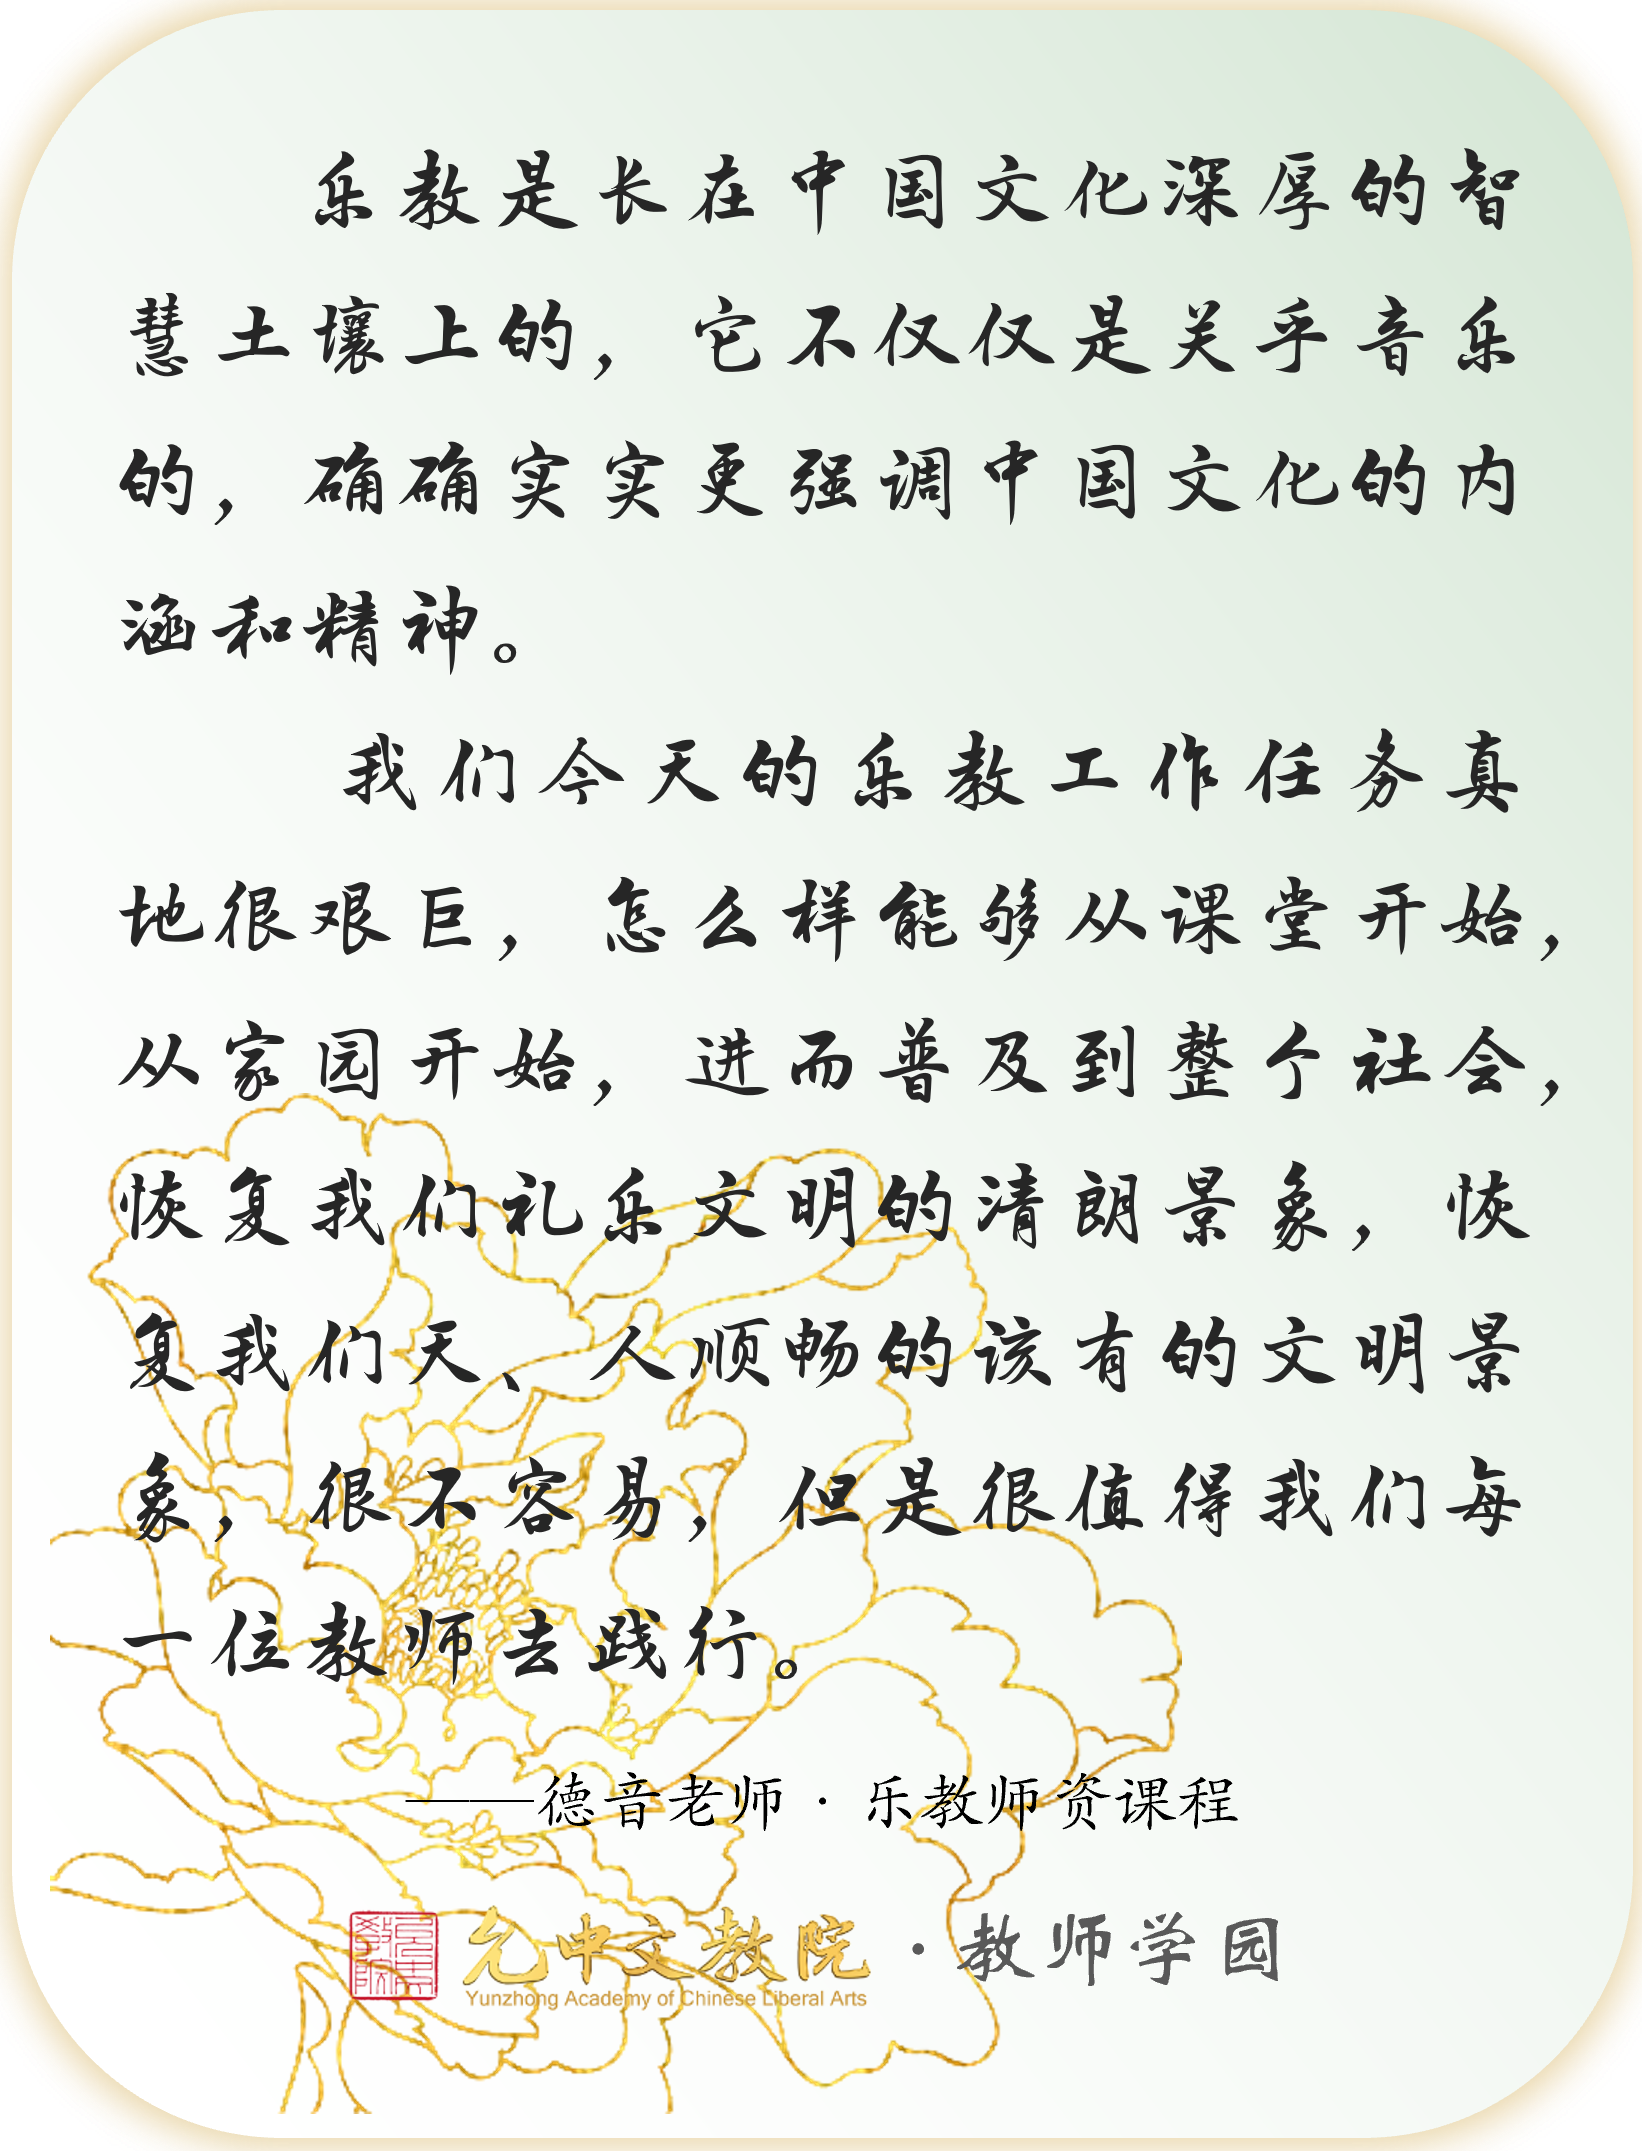 乐教是长在中国文化深厚的智
慧土壤上的，它不仅仅是关乎音乐
的，确确实实更强调中国文化的内
涵和精神。
我们今天的乐教工作任务真
地很艰巨，怎么样能够从课堂开始，
从家园开始，进而普及到整个社会，
恢复我们礼乐文明的清朗景象，恢
复我们天、人顺畅的该有的文明景
象，很不容易，但是很值得我们每
一位教师去践行。
——德音老师 · 乐教师资课程
允中文教院 · 教师学园
Yunzhong Academy of Chinese Liberal Arts